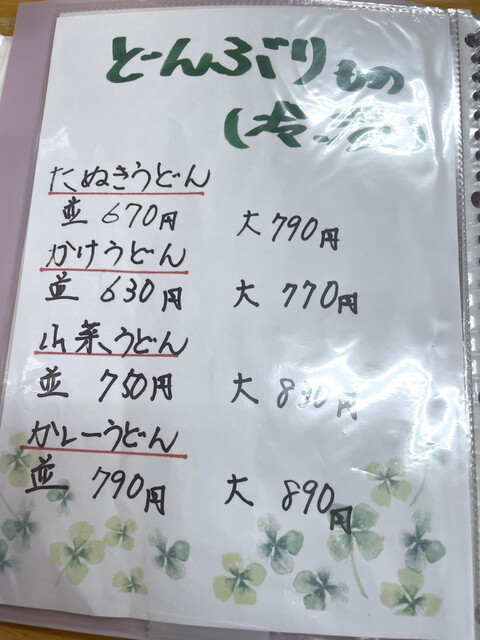 どんぶりもの
たぬきうどん
並 670円 大 790円
かけうどん
並 630円 大 770円
山菜うどん
並 750円 大 830円
カレーうどん
並 790円 大 890円